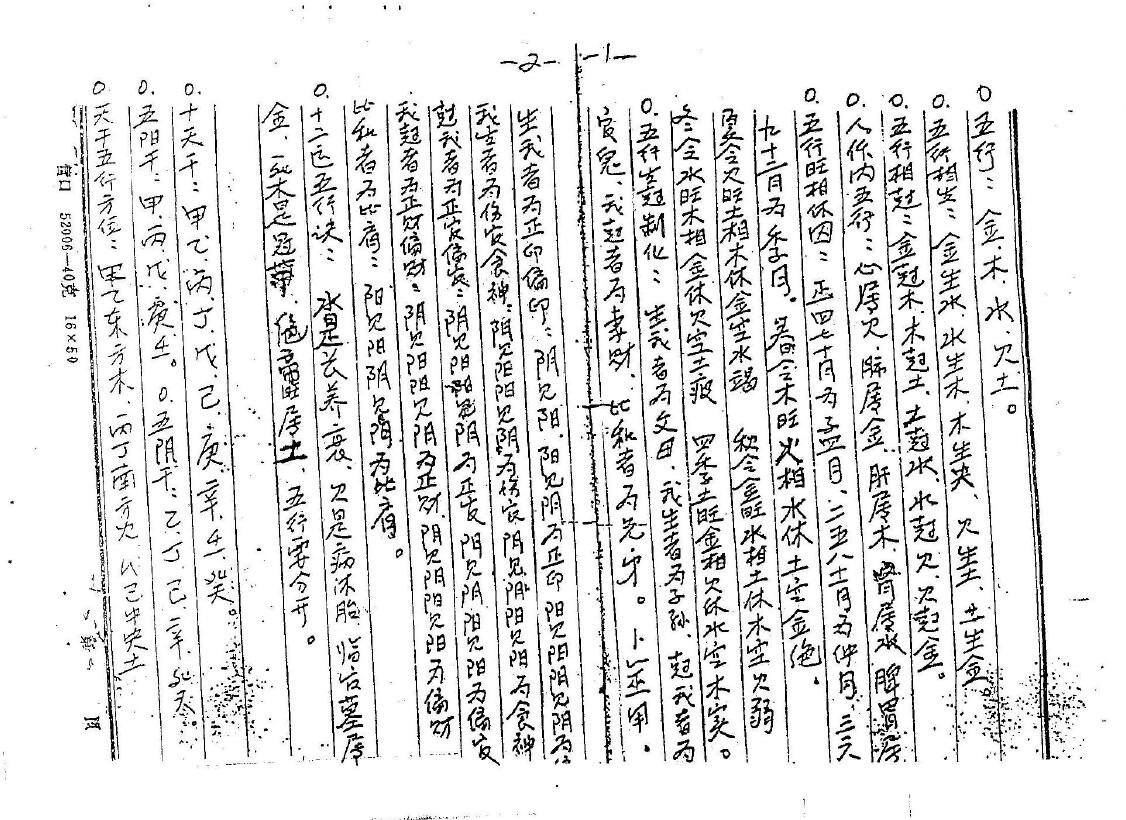 -1-
0. 五行：金、木、水、火土。
0. 五行相生：金生水、水生木、木生火、火生土、土生金。
0. 五行相尅：金尅木、木尅土、土尅水、水尅火、火尅金。
0. 人体内五行：心居火、肺居金、肝居木、肾居水、脾胃居
0. 五行旺相休囚：正四七十月为孟月、二五八十月为仲月、三六
九十二月为季月。春令木旺火相水休土空金绝。
夏令火旺土相木休金空水竭 秋令金旺水相土休木空火弱
冬令水旺木相金休火空土 四季土旺金相火休水空木
0. 五行生尅制化：生我者为父母、我生者为子孙、尅我者为
官鬼、我尅者为妻财、比和者为兄弟。卜巫甲。
-2-
生我者为正印偏印：阴见阳、阳见阴为正印阳见阳阴见阴为
我生者为伤官食神：阴见阳阳见阴为伤官阴见阴阳见阳为食神
尅我者为正官偏官：阴见阳阳见阴为正官阴见阴阳见阳为偏官
我尅者为正财偏财：阴见阳阳见阴为正财、阴见阴阳见阳为偏财
比和者为比肩：阳见阳阴见阴为比肩。
0. 十二运五行诀：水是长养衰、火是病沐胎临官墓居
金、死木是冠带、绝帝居土、五行要分开。
0. 十天干：甲乙丙、丁、戊、己、庚、辛、壬、癸。
0. 五阳干：甲、丙、戊、庚、壬。0. 五阴干：乙、丁、己、辛
0. 天干五行方位：甲乙东方木、丙丁南方火、戊己中央土
营口 52006—40克 16×50
页